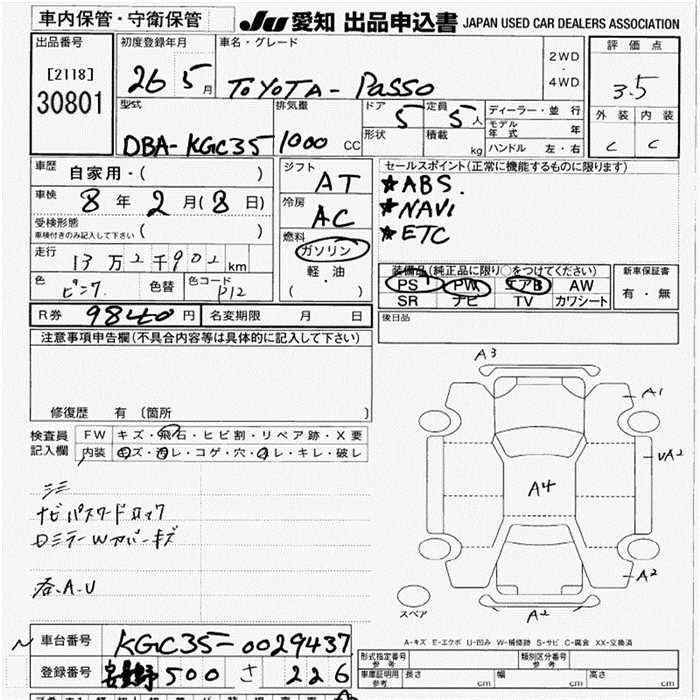 車内保管・守衛保管
JU 愛知 出品申込書 JAPAN USED CAR DEALERS ASSOCIATION
出品番号
[2118]
30801
初度登録年月
26 5 月
車名・グレード
TOYOTA - PASSO
2WD
・
4WD
評価点
3.5
外装 内装
C C
型式
DBA-KGC35
排気量
1000 CC
ドア
5
形状
定員
5 人
積載
kg
ディーラー・並行
モデル年式 年
ハンドル 左・右
車歴
自家用・( )
車検
8 年 2 月(8 日)
受検形態
車検付きのみ記入して下さい ( )
走行
13 万 2 千 902 km
色
ピンク
色替
色コード
P12
シフト
AT
冷房
AC
燃料
ガソリン
軽・油
( ・ )
セールスポイント(正常に機能するものに限ります)
★ABS.
★NAVI
★ETC
装備品(純正品に限り○をつけてください)
PS PW エアB AW
SR ナビ TV カワシート
新車保証書
有・無
R券 9840 円
名変期限 月 日
後日品
注意事項申告欄(不具合内容等は具体的に記入して下さい)
修復歴 有 (箇所 )
検査員
記入欄
FW キズ・飛石・ヒビ割・リペア跡・X要
内装 キズ・汚レ・コゲ・穴・スレ・キレ・破レ
ナビパスワードロック
ロミラーWカバーキズ
各.A.U
A3
A1
UA2
A4
A2
A2
スペア
A-キズ E-エクボ U-凹み W-補修跡 S-サビ C-腐食 XX-交換済
車台番号 KGC35-0029437
登録番号 500 さ 226
形式指定番号
参考
類別区分番号
参考
車庫証明用
参考
長さ cm
幅 cm
高さ cm